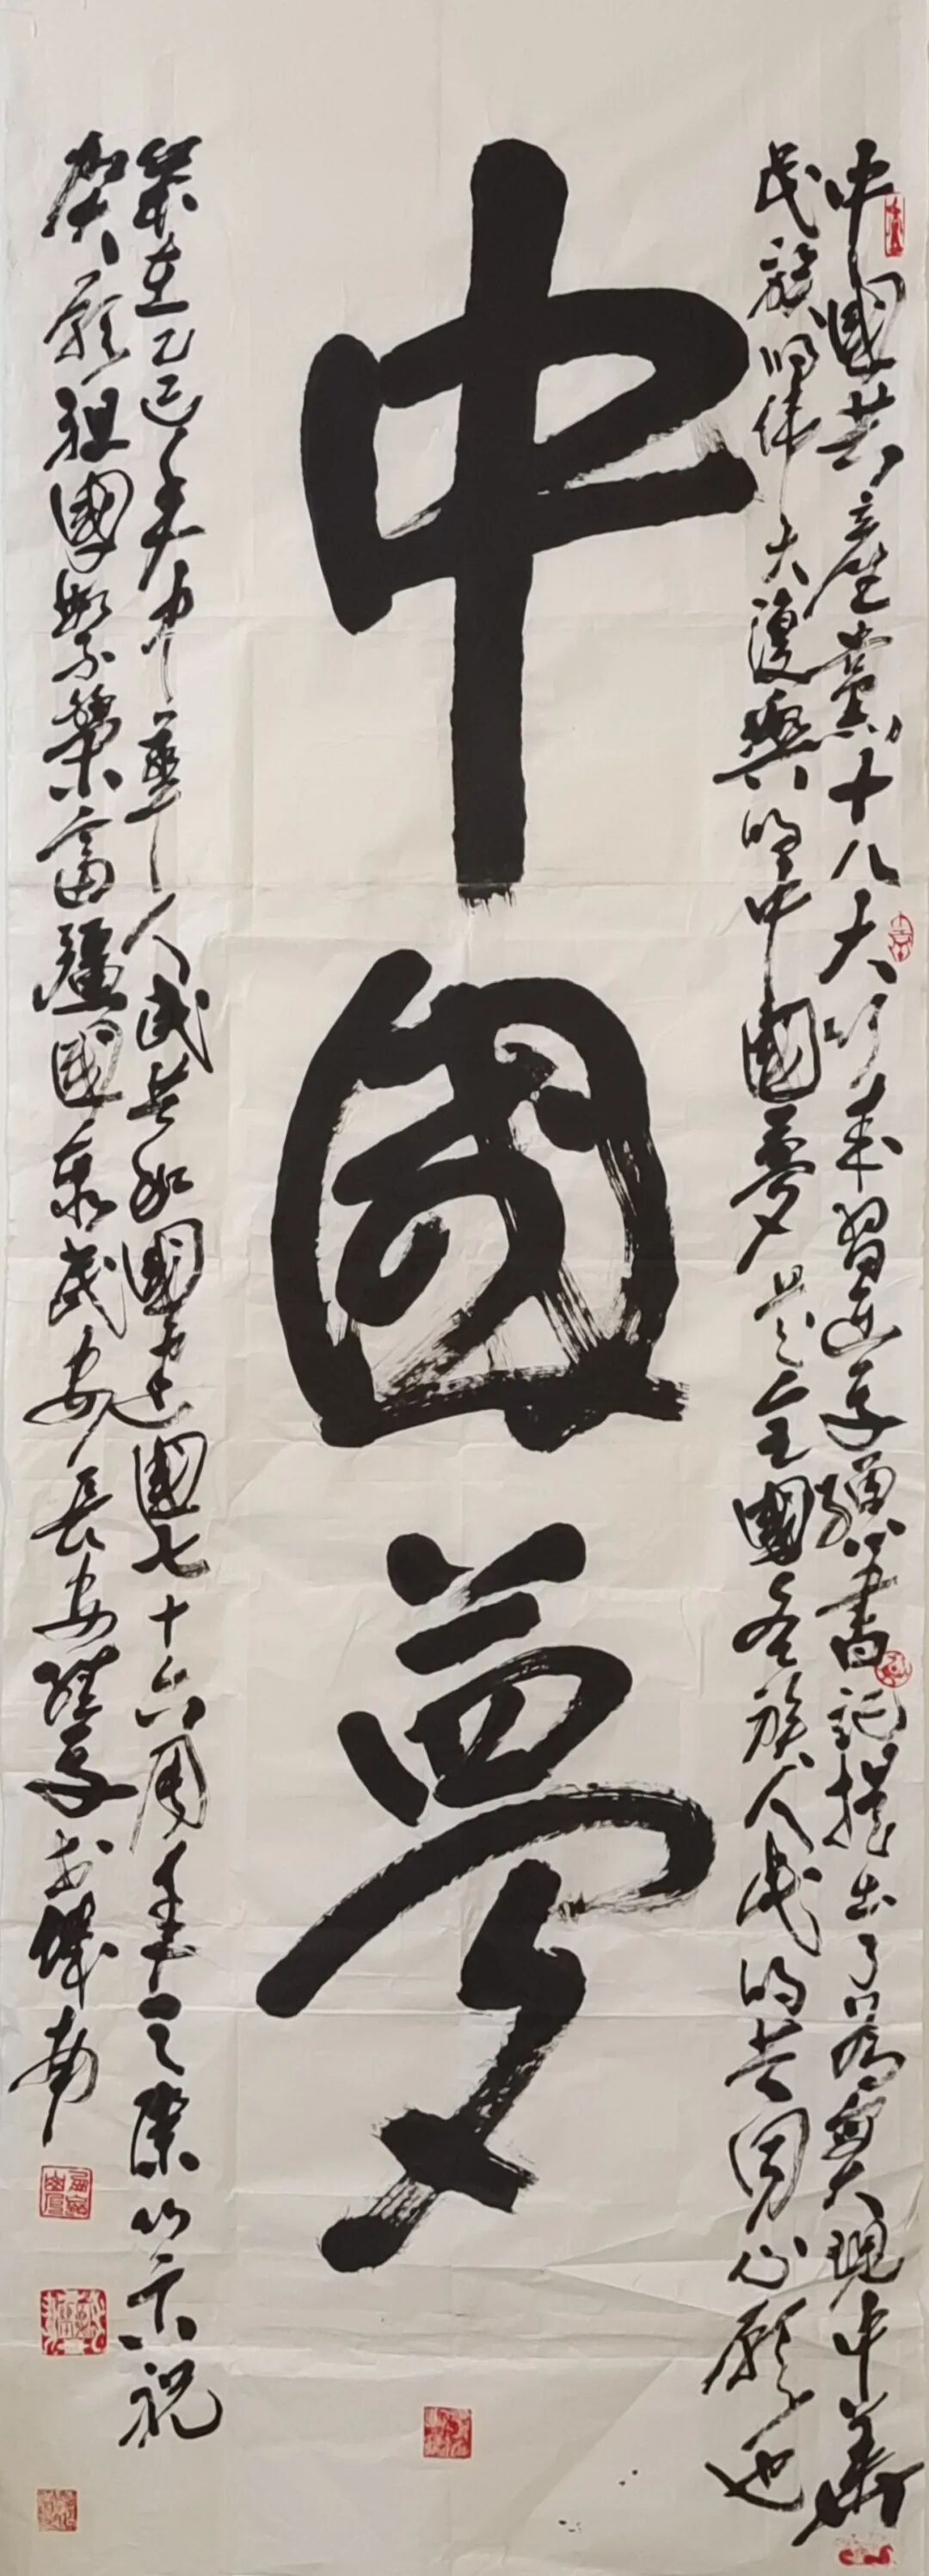 中國共產黨十八大以來習近平總書記提出了為實現中華
民族的偉大復興的中國夢是全國各族人民的共同心願也
中國夢
歲在乙巳年中華人民共和國建國七十六周年之際以示祝
賀願祖國繁榮富強國泰民安長安